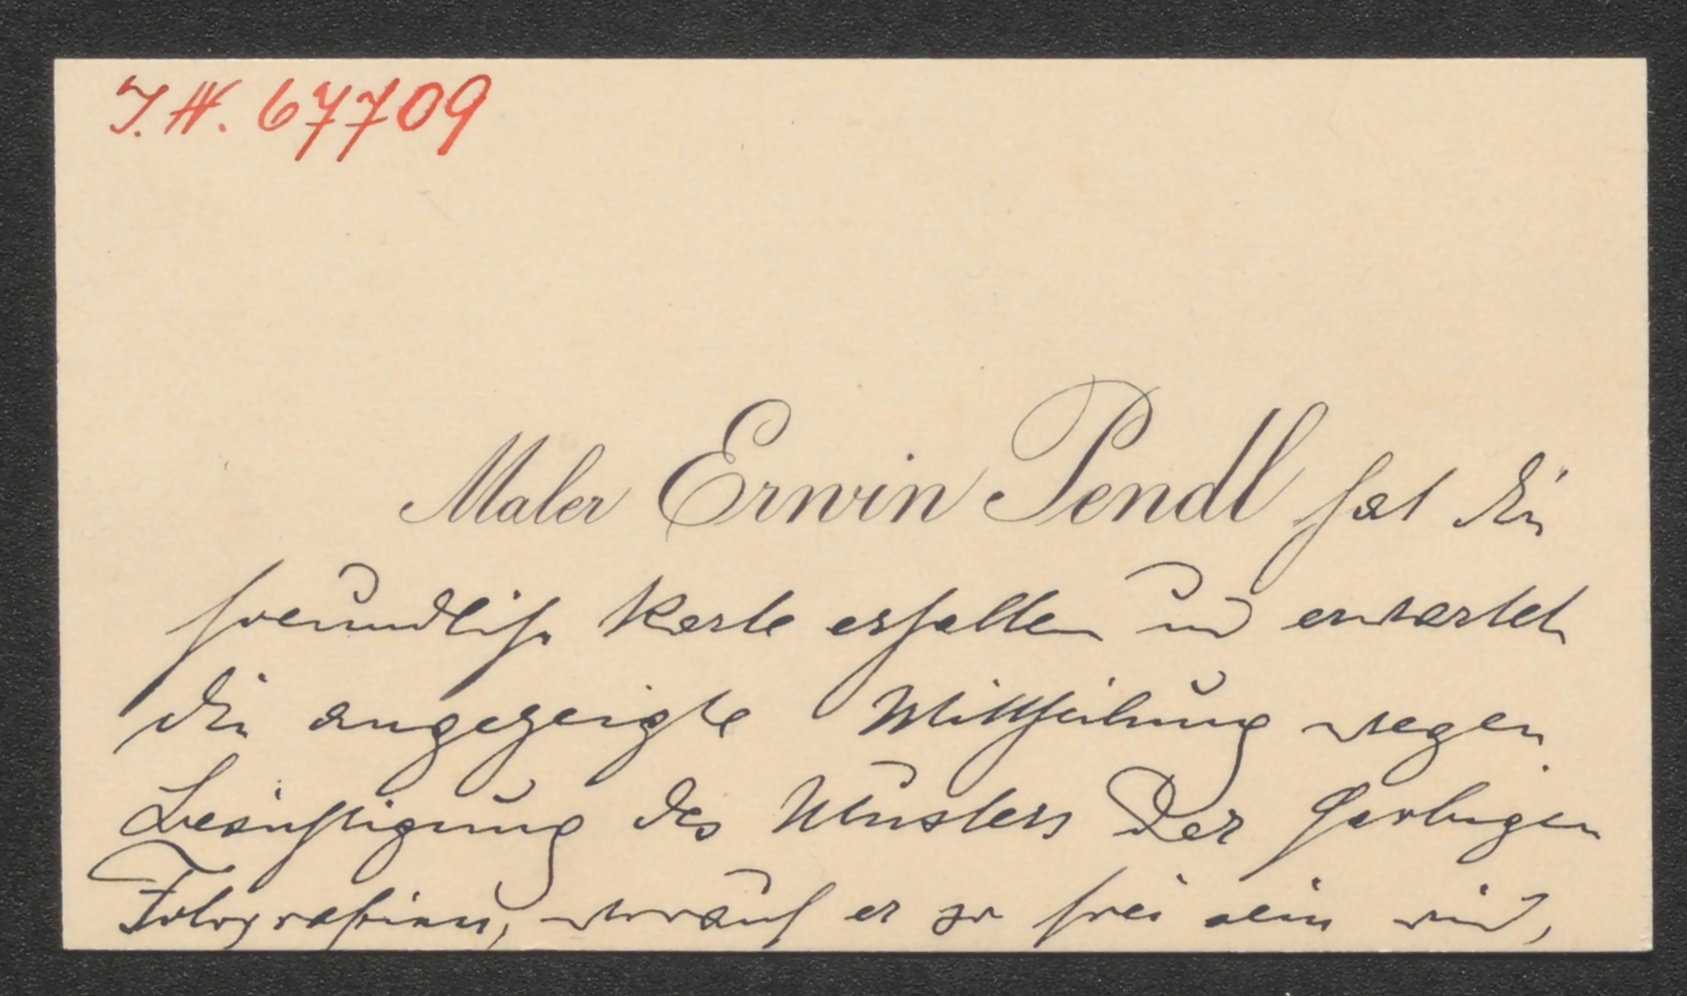 I.N. 67709
Maler Erwin Pendl hat die
freundliche Karte erhalten und erwartet
die angezeigte Mittheilung wegen
Besichtigung des Musters der farbigen
Fotografien, worauf er so frei sein wird,